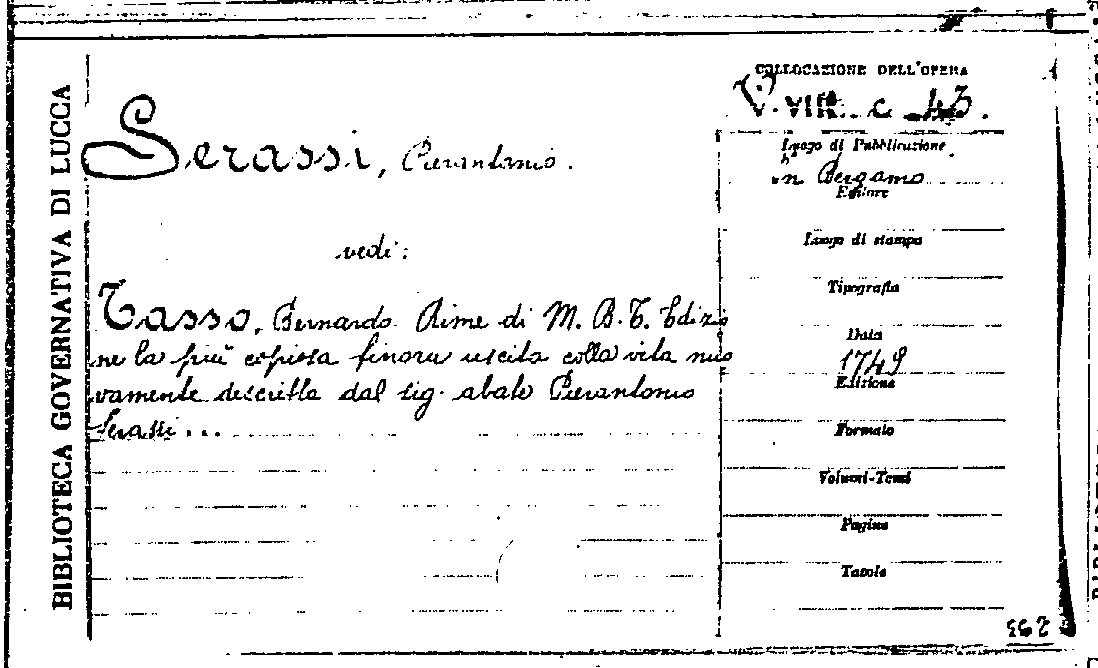 BIBLIOTECA GOVERNATIVA DI LUCCA
COLLOCAZIONE DELL'OPERA
V. VIII. c 43.
Serassi, Pierantonio.
Luogo di Pubblicazione
in Bergamo
Editore
vedi:
Luogo di stampa
Tipografia
Tasso, Bernardo. Rime di M. B. T. Edizio
ne la più copiosa finora uscita colla vita nuo
vamente descritta dal sig. abate Pierantonio
Serassi...
Data
1749
Edizione
Formato
Volumi-Tomi
Pagine
Tavole